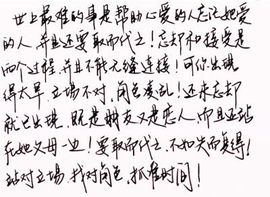 世上最难的事是帮助心爱的人忘记她爱
的人并且还要取而代之！忘却和接受是
两个过程，并且不能无缝连接！可你出现
得太早，立场不对，角色爱乱！还未忘却
就已出现，既是朋友又是恋人，而且还站
在她父母一边！要取而代之，不如失而复得！
站对立场，找对角色，抓准时间！